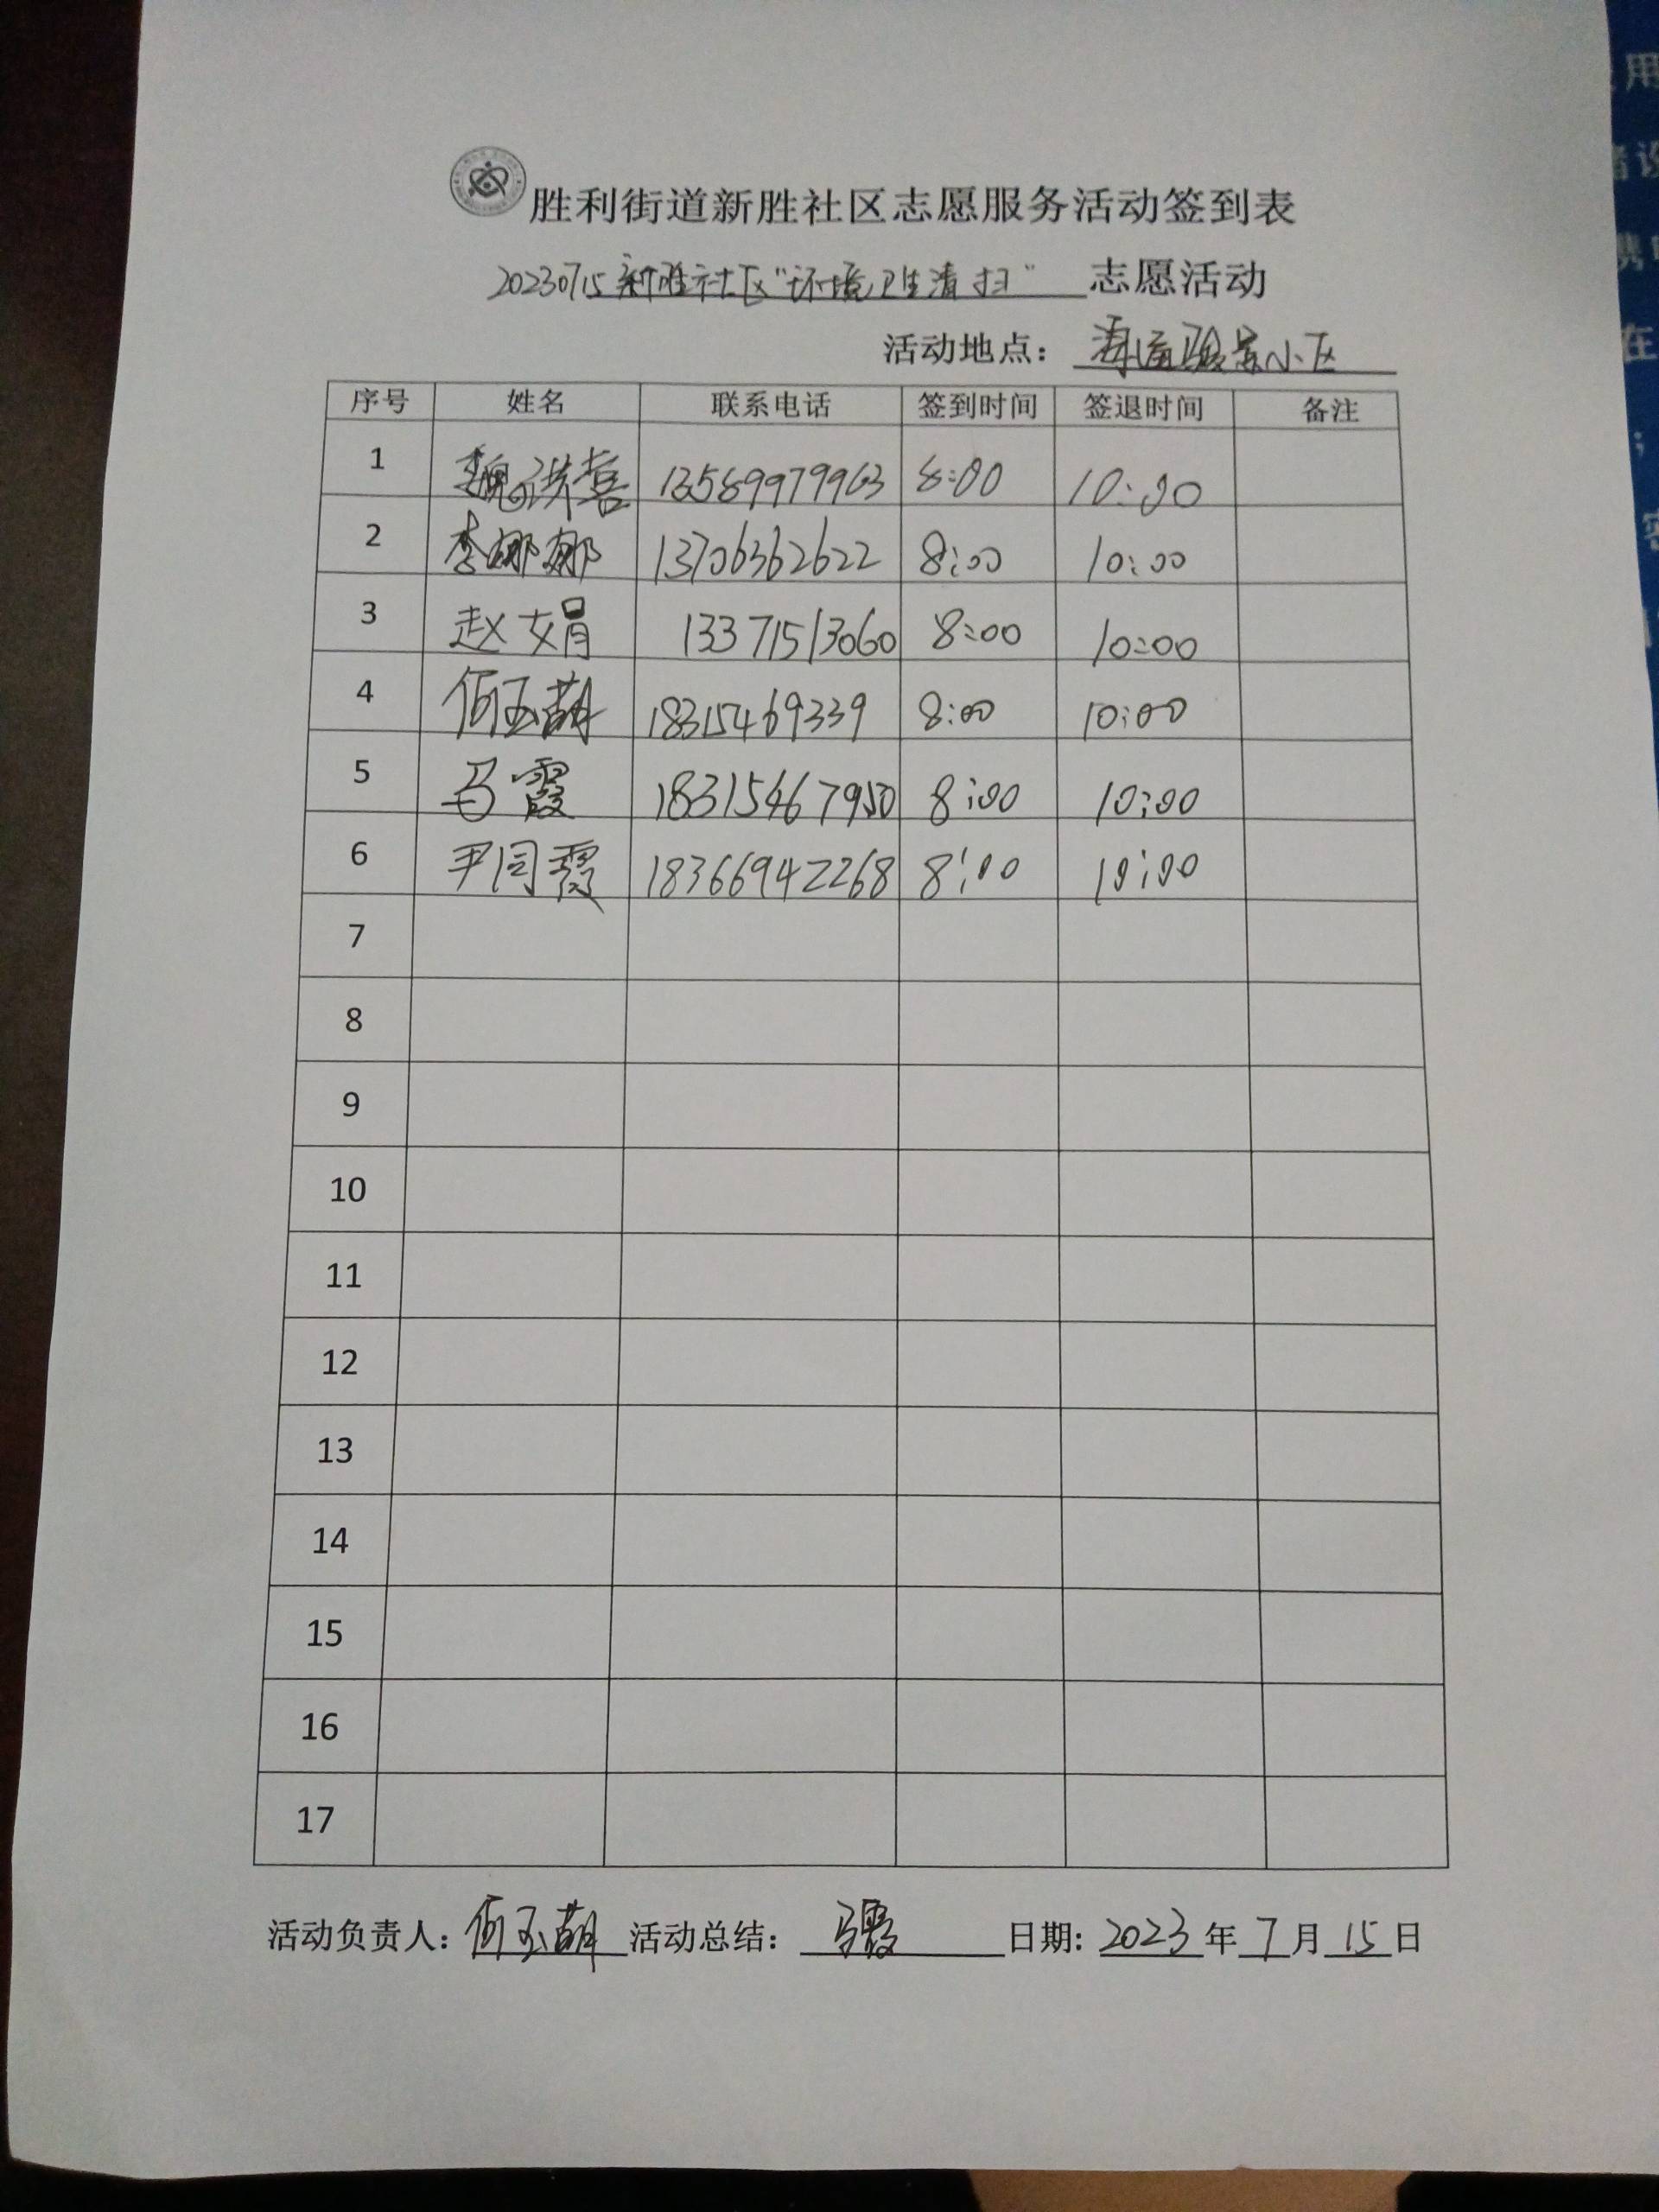 胜利街道新胜社区志愿服务活动签到表
20230715新胜社区"环境卫生清扫" 志愿活动
活动地点: 海通骏景小区
序号 姓名 联系电话 签到时间 签退时间 备注
1 魏洪喜 13589979963 8:00 10:00
2 李娜娜 13706362622 8:00 10:00
3 赵娟 13371513060 8:00 10:00
4 何玉萌 18315469339 8:00 10:00
5 马霞 18315467950 8:00 10:00
6 尹同霞 18366942268 8:00 10:00
7
8
9
10
11
12
13
14
15
16
17
活动负责人: 何玉萌 活动总结: 马霞 日期: 2023 年 7 月 15 日
用
诸设
携
在
;
密